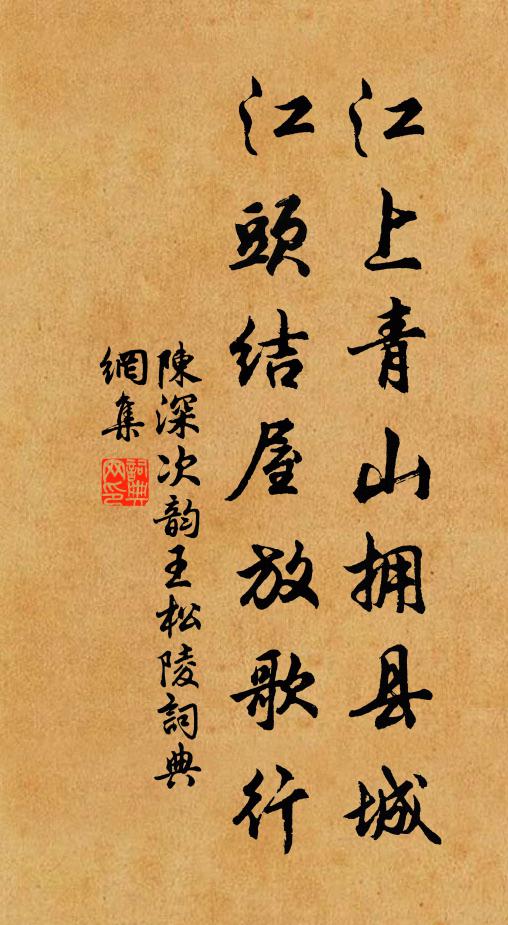 江上青山拥县城
江頭结屋放歌行
陳深次韵王松陵詞典
網集
詞典
网印